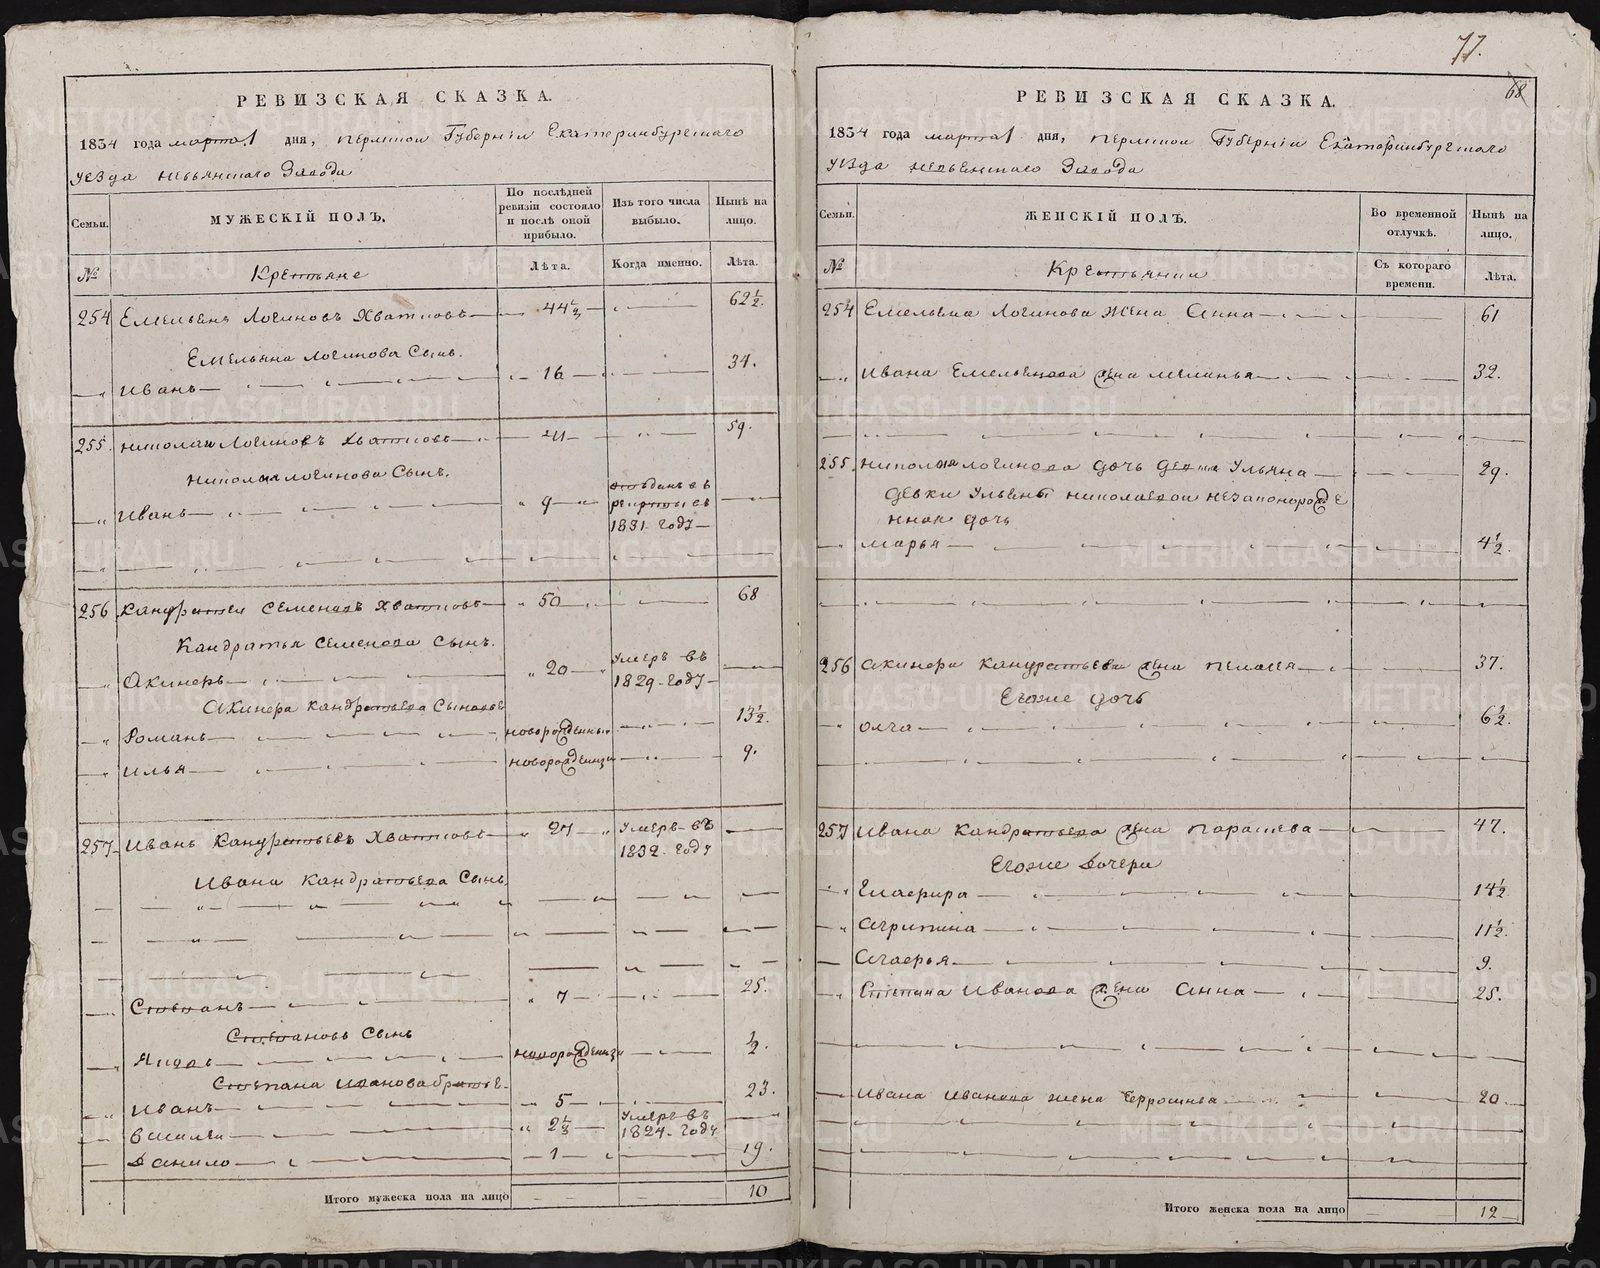 77.
РЕВИЗСКАЯ СКАЗКА.
1834 года марта 1 дня, пермской Губернiи Екатеринбургскаго
уезда невьянскаго Завода
Семьи.
МУЖЕСКІЙ ПОЛЪ.
По послѣдней ревизіи состояло и послѣ оной прибыло.
Изъ того числа выбыло.
Нынѣ на лицо.
№
Крестьяне
Лѣта.
Когда именно.
Лѣта.
254 Емельянъ Логиновъ Хватковъ 44 62½.
Емельяна Логинова Сынъ.
Иванъ 16 34.
255. николаи Логиновъ Хватковъ 41 59.
николая логинова Сынъ.
Иванъ 9 отъданъ въ рекруты въ 1831 году
256 Кандратеи Семеновъ Хватковъ 50 68
Кандратья Семенова Сынъ.
Акинеръ 20 умеръ въ 1829 году
Акинера кандратьева Сыновье
Романъ новорожденныи 13½.
Илья новорожденны 9.
257 Иванъ Кандратьевъ Хватковъ 27 умеръ въ 1832 году
Ивана Кандратьева Сынъ.
Степанъ 7 25.
Степановъ Сынъ
новорожденны ½.
Степана Иванова братье
Иванъ 5 23.
Василеи 2½ умеръ въ 1824 году
Данило 1 19.
Итого мужеска пола на лицо 10
68
РЕВИЗСКАЯ СКАЗКА.
1834 года марта 1 дня, пермской Губернiи Екатеринбургскаго
уезда невьянскаго Завода
Семьи.
ЖЕНСКІЙ ПОЛЪ.
Во временной отлучкѣ.
Нынѣ на лицо.
№
Крестьянки
Съ котораго времени.
Лѣта.
254 Емельяна Логинова жена Анна 61
Ивана Емельянова жена меланья 32.
255. николая логинова дочь девка Ульяна 29.
девки Ульяны николаевои незаконорожде
нная дочь
марья 4½
256 акинера кандратьева жена пелагея 37.
Егоже дочь
олга 6½.
257 Ивана Кандратьева жена парасева 47.
Егоже дочери
Глафира 14½
Агрипина 11½.
Агафья 9.
Степана Иванова жена Анна 25.
Ивана Иванова жена 20
Итого женска пола на лицо 12